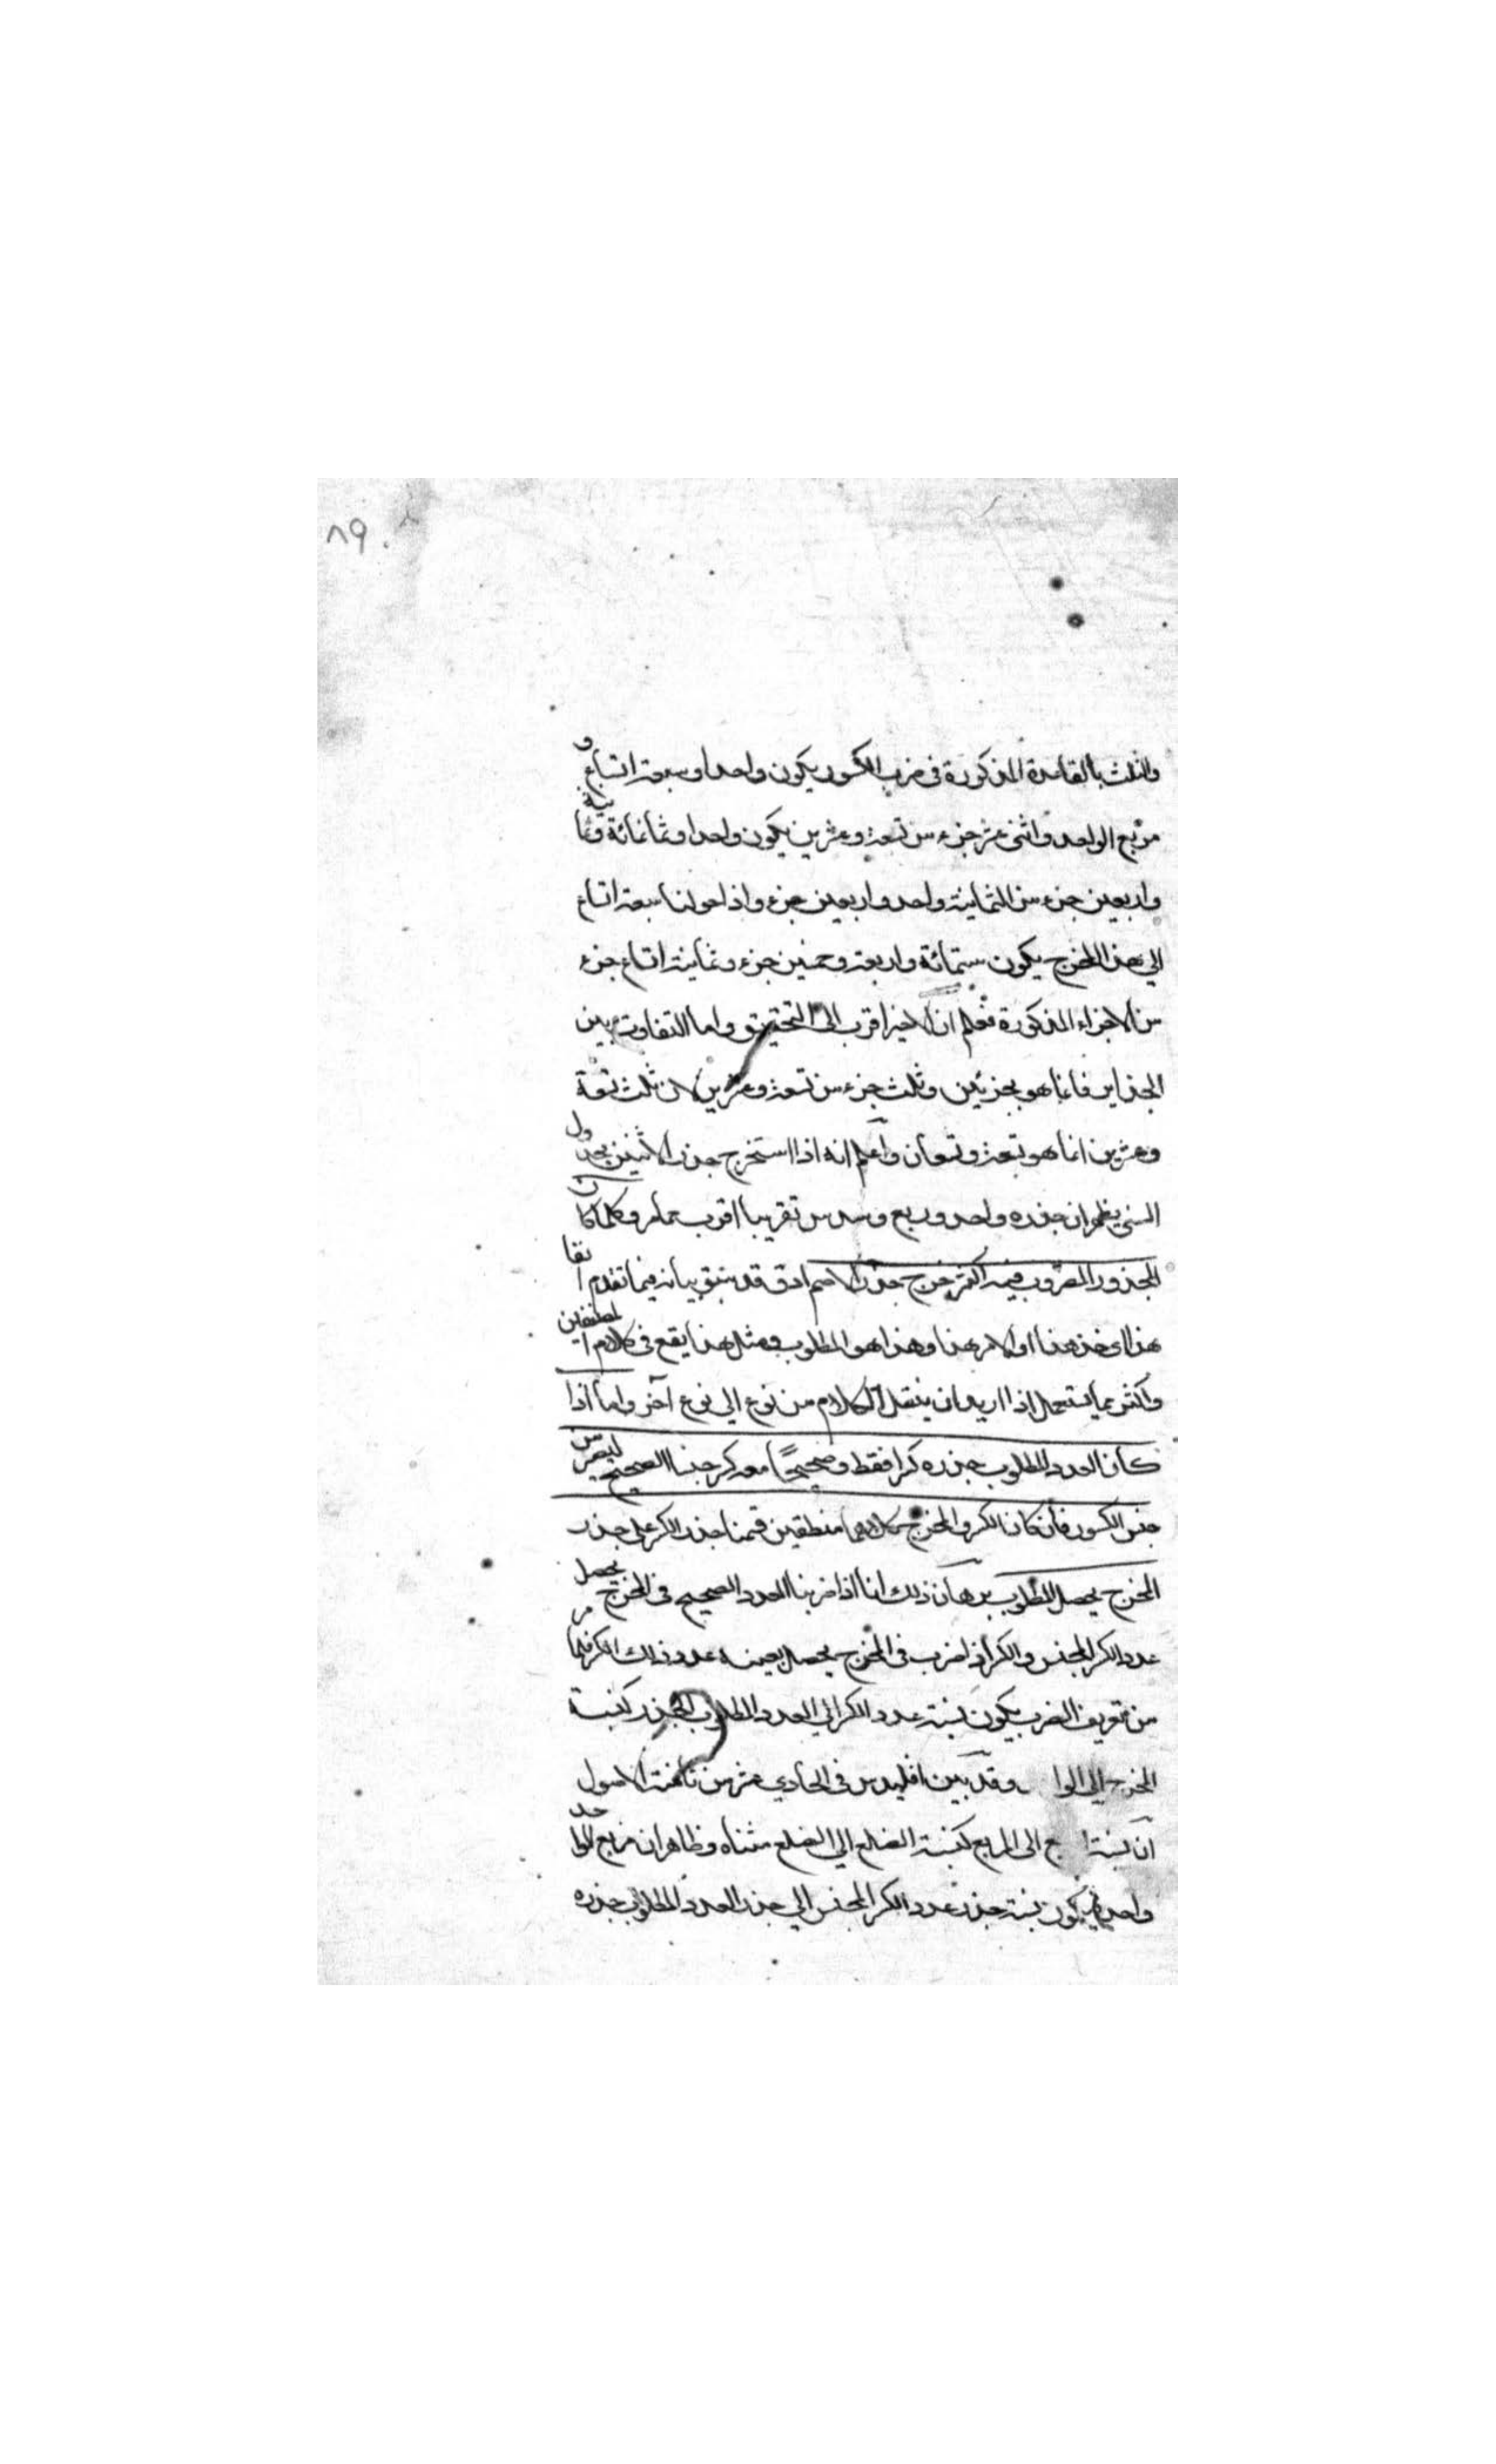 ٨٩
والثلث بالقاعدة المذكورة فى ضرب الكسور يكون واحدا وسبعة اتساع و
مربع الواحد واثنى عشر جزء من تسعة وعشرين يكون واحدا وثمانمائة وثمانية
واربعين جزء من الثمانية واحد واربعين جزء واذا حولنا سبعة اتساع
الي هذا المخرج يكون ستمائة واربعة وخمسين جزء وثمانية اتساع جزء
من الاجزاء المذكورة فعلم ان الاخير اقرب الى التحقيق واما التفاوت بين
الجذرين فانما هو بجزئين وثلث جزء من تسعة وعشرين لان ثلث تسعة
وعشرين انما هو تسعة وتسعان واعلم انه اذا استخرج جذر الاثنين بجدول
الستيني يظهر ان جذره واحد وربع وسدس تقريبا اقرب مما مر وكلما كان
المجذور المضروب فيه اكثر خرج جذر الاصم ادق قد سبق بيانه فيما تقدم انفا
هذا اى خذ هذا او الامر هذا وهذا هو المطلوب ومثل هذا يقع فى كلام المصنفين
واكثر ما يستعمل اذا اريد ان ينتقل الكلام من نوع الي نوع آخر واما اذا
كان العدد المطلوب جذره كسرا فقط وصحيحًا معه كسر جنسنا الصحيح ليصير من
جنس الكسور فان كان الكسر والمخرج كلاهما منطقين قسمنا جذر الكسر على جذر
المخرج يحصل المطلوب برهان ذلك انا اذا ضربنا العدد الصحيح فى المخرج يحصل
عدد الكسر المجنس والكسر اذا ضرب فى المخرج يحصل بعينه عدد ذلك الكسر فلما مر
من تعريف الضرب يكون نسبة عدد الكسر الي العدد المطلوب الجذر كنسبة
المخرج الي الوا وقد بين اقليدس فى الحادي عشر من ثامنة الاصول
ان نسبة ا ع الى المربع كنسبة الضلع الي الضلع مثناه وظاهر ان مربع الواحد
واحد فيكون نسبة جذر عدد الكسر المجنس الي جذر العدد المطلوب جذره